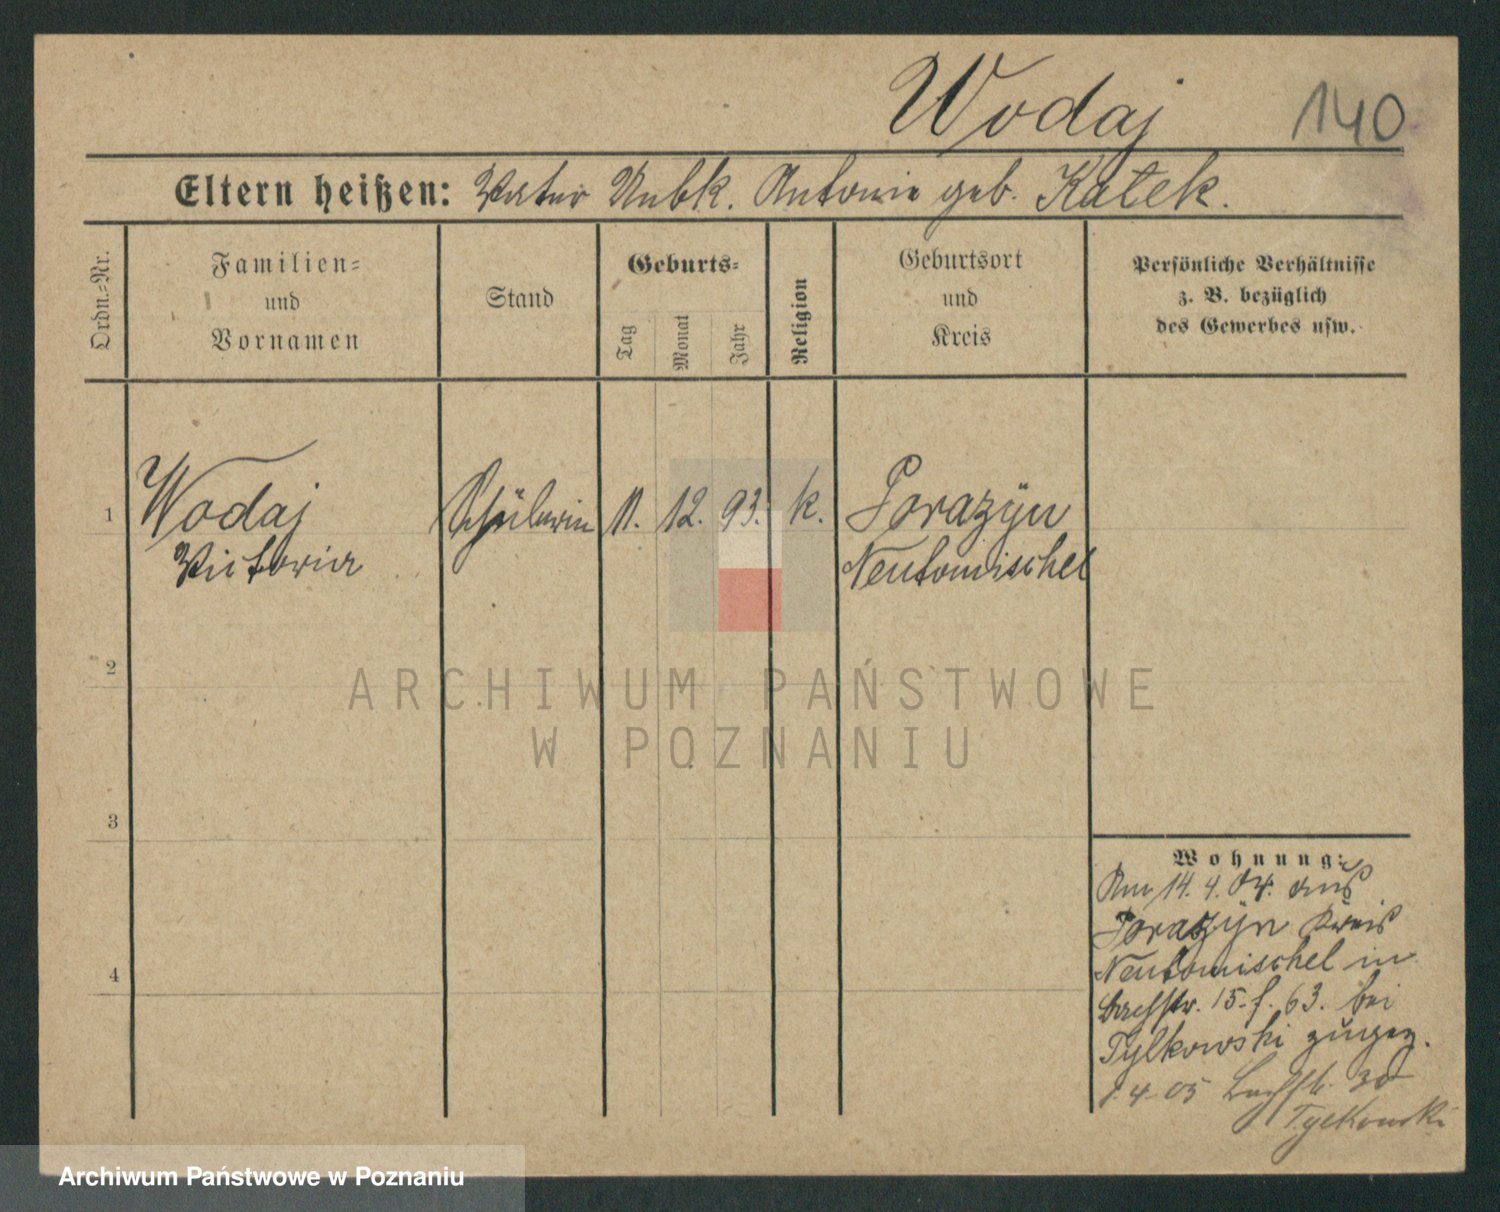 Wodaj 140
Eltern heißen: Vater Unbk. Antonie geb. Katek.
Ordn.-Nr.
Familien-
und
Vornamen
Stand
Geburts-
Tag
Monat
Jahr
Religion
Geburtsort
und
Kreis
Persönliche Verhältnisse
z. B. bezüglich
des Gewerbes usw.
1 Wodaj Schülerin 11. 12. 93. k. Porazÿn
Victoria Neutomischel
2
3
4
Wohnung:
Am 14. 4. 04. aus
Porazÿn Kreis
Neutomischel in
Bachstr. 15. f. 63. bei
Tylkowski zugez.
1 4 05 Bachstr. 30
Tylkowski
ARCHIWUM PAŃSTWOWE
W POZNANIU
Archiwum Państwowe w Poznaniu